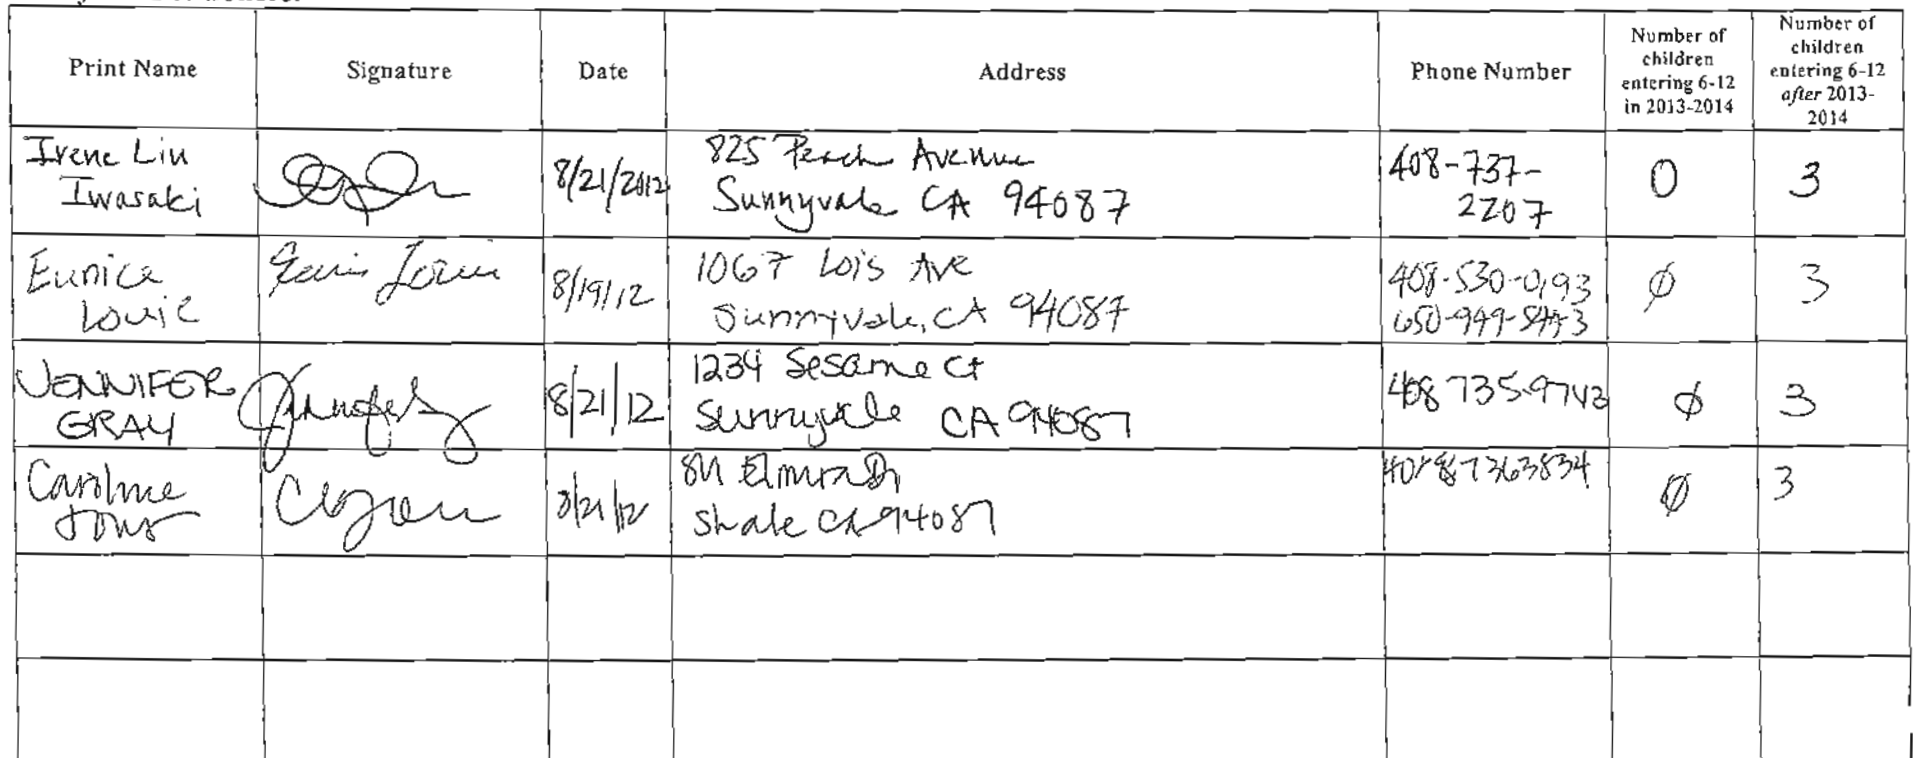 Print Name
Signature
Date
Address
Phone Number
Number of
children
entering 6-12
in 2013-2014
Number of
children
entering 6-12
after 2013-
2014
Irene Liu
Iwasaki
8/21/2012
825 Peach Avenue
Sunnyvale CA 94087
408-737-
2207
0
3
Eunice
Louie
8/19/12
1067 Lois Ave
Sunnyvale, CA 94087
408-530-0193
Ø
3
JENNIFER
GRAY
8/21/12
1234 Sesame Ct
Sunnyvale CA 94087
408 735-9743
Ø
3
Caroline
8/21/12
811 Elmira Dr
Svale CA 94087
7363834
Ø
3